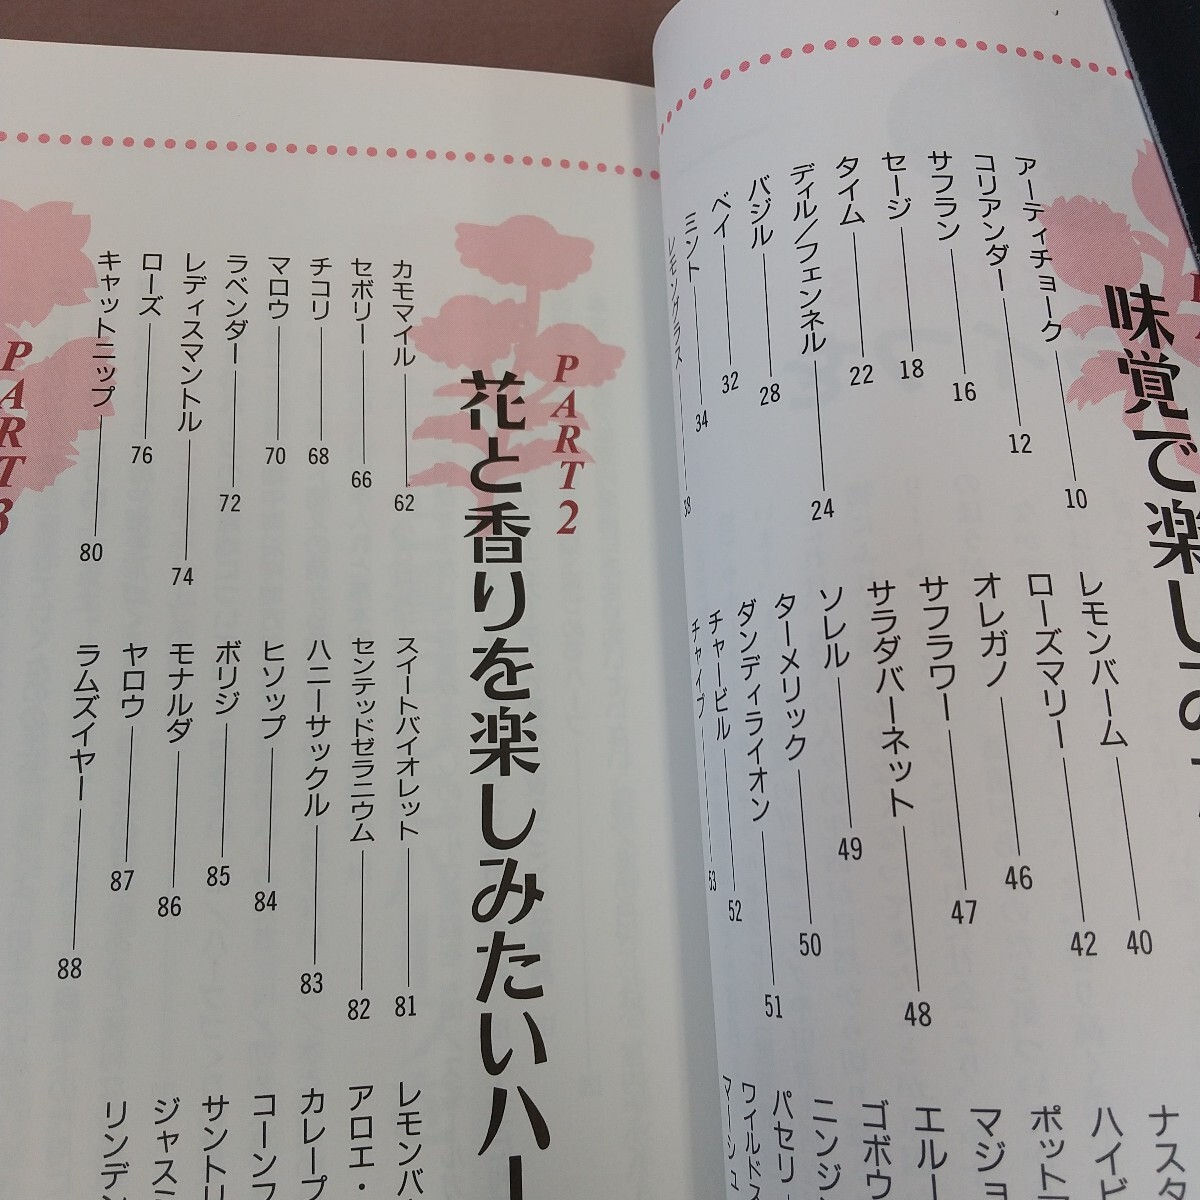 味覚で楽しみ
アーティチョーク 10
コリアンダー 12
サフラン 16
セージ 18
タイム 22
ディル/フェンネル 24
バジル 28
ベイ 32
ミント 34
レモングラス 38
レモンバーム 40
ローズマリー 42
オレガノ 46
サフラワー 47
サラダバーネット 48
ソレル 49
ターメリック 50
ダンディライオン 51
チャービル 52
チャイブ 53
ナスタ
ハイビ
ポット
マジョ
エルー
ゴボウ
ニンジン
パセリー
ワイルドス
マーシュ
PART2
花と香りを楽しみたいハー
カモマイル 62
セボリー 66
チコリ 68
マロウ 70
ラベンダー 72
レディスマントル 74
ローズ 76
キャットニップ 80
スイートバイオレット 81
センテッドゼラニウム 82
ハニーサックル 83
ヒソップ 84
ボリジ 85
モナルダ 86
ヤロウ 87
ラムズイヤー 88
レモンバ
アロエ・
カレープ
コーンフ
サントリ
ジャスミ
リンデン
PART3